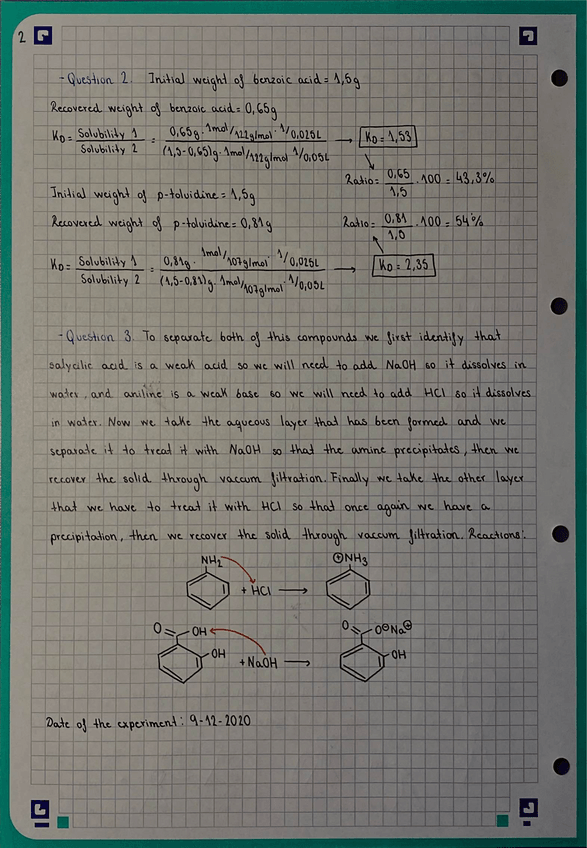 2
-Question 2. Initial weight of benzoic acid = 1,5g
Recovered weight of benzoic acid = 0,65g
KD = Solubility 1 / Solubility 2 = 0,65g · 1mol/122g/mol · 1/0,025L / (1,5-0,65)g · 1mol/122g/mol · 1/0,05L → KD = 1,53
Ratio = 0,65 / 1,5 · 100 = 43,3%
Initial weight of p-toluidine = 1,5g
Recovered weight of p-toluidine = 0,81g
Ratio = 0,81 / 1,5 · 100 = 54%
KD = Solubility 1 / Solubility 2 = 0,81g · 1mol/107g/mol · 1/0,025L / (1,5-0,81)g · 1mol/107g/mol · 1/0,05L → KD = 2,35
-Question 3. To separate both of this compounds we first identify that
salycilic acid is a weak acid so we will need to add NaOH so it dissolves in
water, and aniline is a weak base so we will need to add HCl so it dissolves
in water. Now we take the aqueous layer that has been formed and we
separate it to treat it with NaOH so that the amine precipitates, then we
recover the solid through vaccum filtration. Finally we take the other layer
that we have to treat it with HCl so that once again we have a
precipitation, then we recover the solid through vaccum filtration. Reactions:
NH2 + HCl → ⊕NH3
O OH OH + NaOH → O O⊖Na⊕ OH
Date of the experiment: 9-12-2020